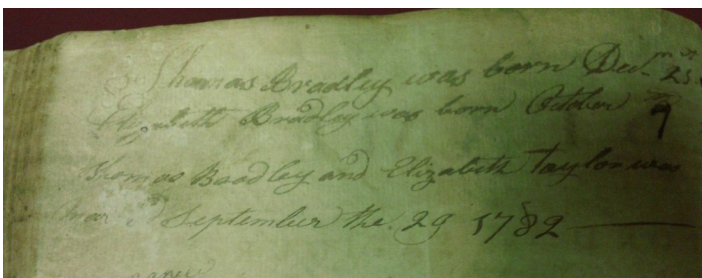 Thomas Bradley was born Decm 25th
Elizabeth Bradley was born October 9th
Thomas Bradley and Elizabeth Taylor was
Mard September the 29 1782